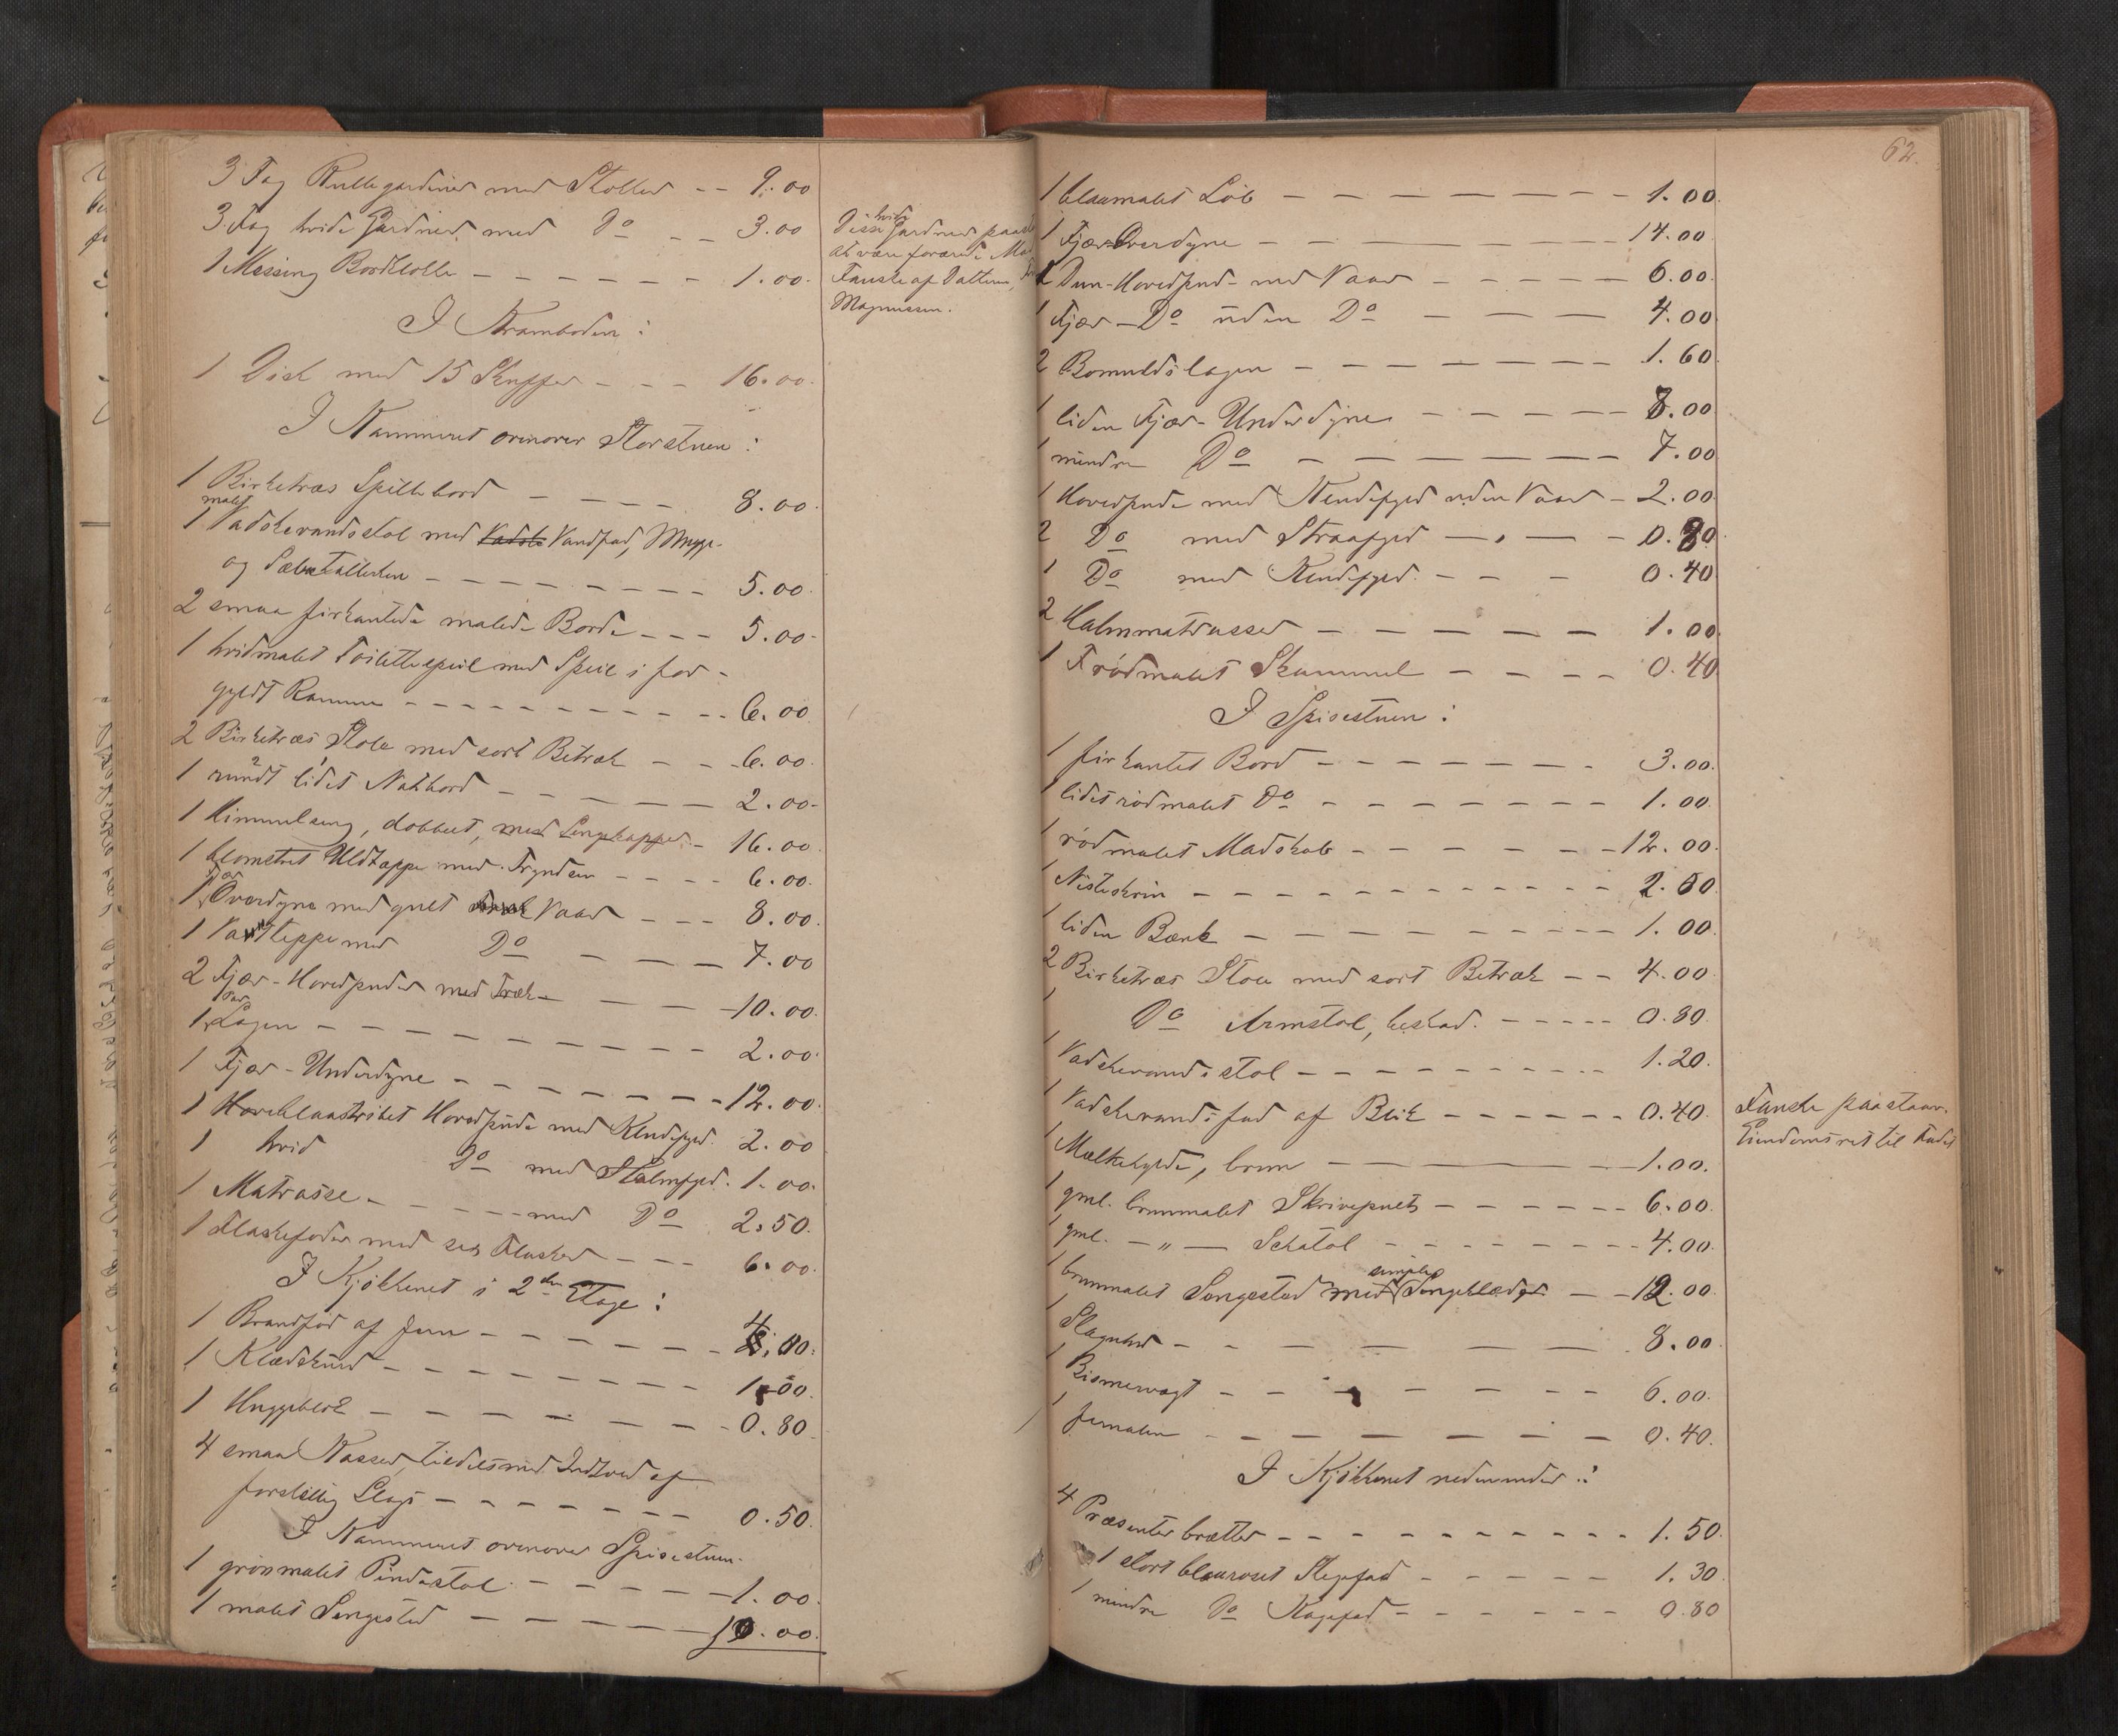 3 Fag Rullegardiner med Stokker -- 9.00
3 Fag hvide Gardiner med Do -- 3.00
1 Messing Bordklokke ----- 1.00.
I Kramboden:
1 Disk med 15 Skuffer --- 16.00.
I Kammeret ovenover Storstuen:
1 Birketræs Spillebord ---- 8.00.
1 malet Vadskevandsstol med Vadske Vandfad, Mugge
og Sæbetallerken ------- 5.00.
2 smaa firkantede malede Borde --- 5.00-
1 hvidmalet Toilettespeil med Speil i for-
gyldt Ramme --------- 6.00
2 Birketræs Stole med sort Betræk --- 6.00.
1 rundt lidet Nathbord ------ 2.00-
1 Himmelseng, dobbelt, med Sengekapper - 16.00.
1 blomstret Uldtæppe med Fryndser ---- 6.00.
1 Fjær Overdyne med gult Vaar --- 8.00.
1 Vattteppe med Do ---- 7.00
2 Fjær-Hovedpuder med Træk --- 10.00.
1 Par Lagen -------- 2.00.
1 Fjær-Underdyne ------- 12.00.
1 Hovedpude med Kludefyld. 2.00
1 hvid Do med Halmfyld. 1.00.
1 Matrasse ----- med Do 2.50.
1 Flaskefoder med sex Flasker --- 6.00.
I Kjøkkenet i 2den Etage:
1 Brandfod af Jern ------
1 Klædekurv -------- 1.00.
1 Huggeblok ------- 0.80
4 smaa Kasser, tildels med Indhold af
forskjellig Slags ------ 0.50.
I Kammeret ovenover Spisestuen.
1 grønmalet Pindestol ----- 1.00.
1 malet Sengested ---- 10.00.
Disse hvide Gardiner paast
at være forærede Ma
Fauske af Datteren, Fru
Magnussen.
62.
1 blaamalet Løb ------- 1.00.
1 Fjær-Overdyne ------- 14.00
2 Dun-Hovedpud- med Vaar ----- 6.00.
1 Fjær-Do uden Do --- 4.00
2 Bomuldslagen ------- 1.60
1 liden Fjær-Underdyne ----- 8.00
1 mindre Do ------ 7.00
1 Hovedpude med Kludefyld uden Vaar - 2.00
2 Do med Straafyld --- 0.80
1 Do med Kludefyld. --- 0.40
2 Halmmatrasser ------ 1.00
1 rødmalet Skammel ---- 0.40
I Spisestuen:
1 firkantet Bord ------- 3.00.
1 lidet rødmalet Do ------- 1.00
1 rødmalet Madskab ------- 12.00.
1 Nisteskrin ----------- 2.50
1 liden Bænk --------- 1.00
2 Birketræs Stole med sort Betræk -- 4.00
1 Do Armstol, beskad. ----- 0.80
1 Vadskevandsstol --------- 1.20.
1 Vadskevandsfad af Blik ------ 0.40.
1 Melkehylde, brun ------ 1.00.
1 gml. brunmalet Skrivepult ------ 6.00.
1 gml. -"- Schatol -------- 4.00.
1 brunmalet Sengested med simple Sengeklæder -- 12.00
1 Slaguhr ------ 8.00
1 Bismervægt ------- 6.00.
1 Jernalen -------- 0.40.
I Kjøkkenet nedenunder:
4 Præsenterbrætter --------- 1.50
1 stort blaaroset Stegefad ----- 1.30
1 mindre Do Kagefad ------ 0.80
Fauske paastaar
Eiendomsret til Fadet